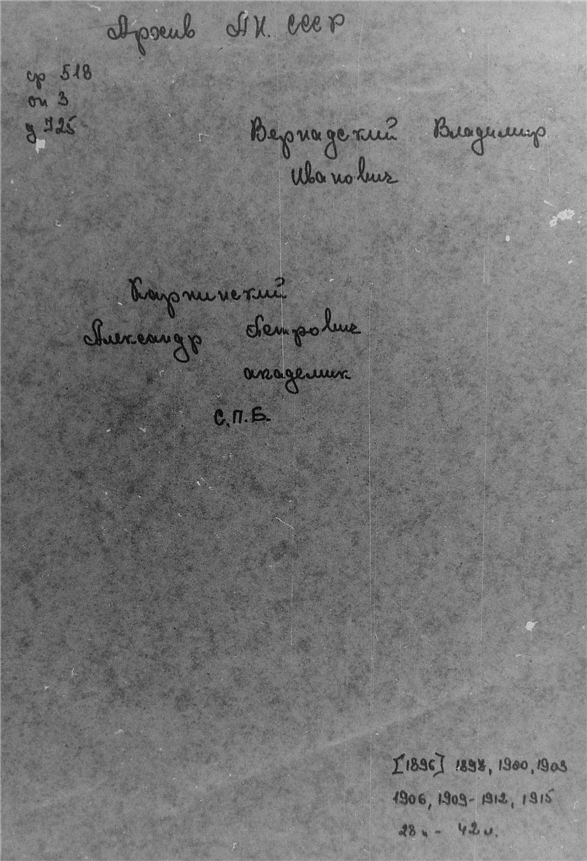 Архив АН. СССР
ф 518
оп 3
д 725
Вернадский Владимир
Иванович
Карпинский
Александр Петрович
академик
С.П.Б.
[1896] 1898, 1900, 1903
1906, 1909-1912, 1915
28 - 42 л.